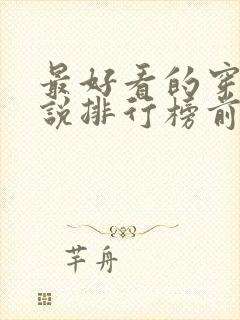 最好看的穿
说排行榜前
芊舟